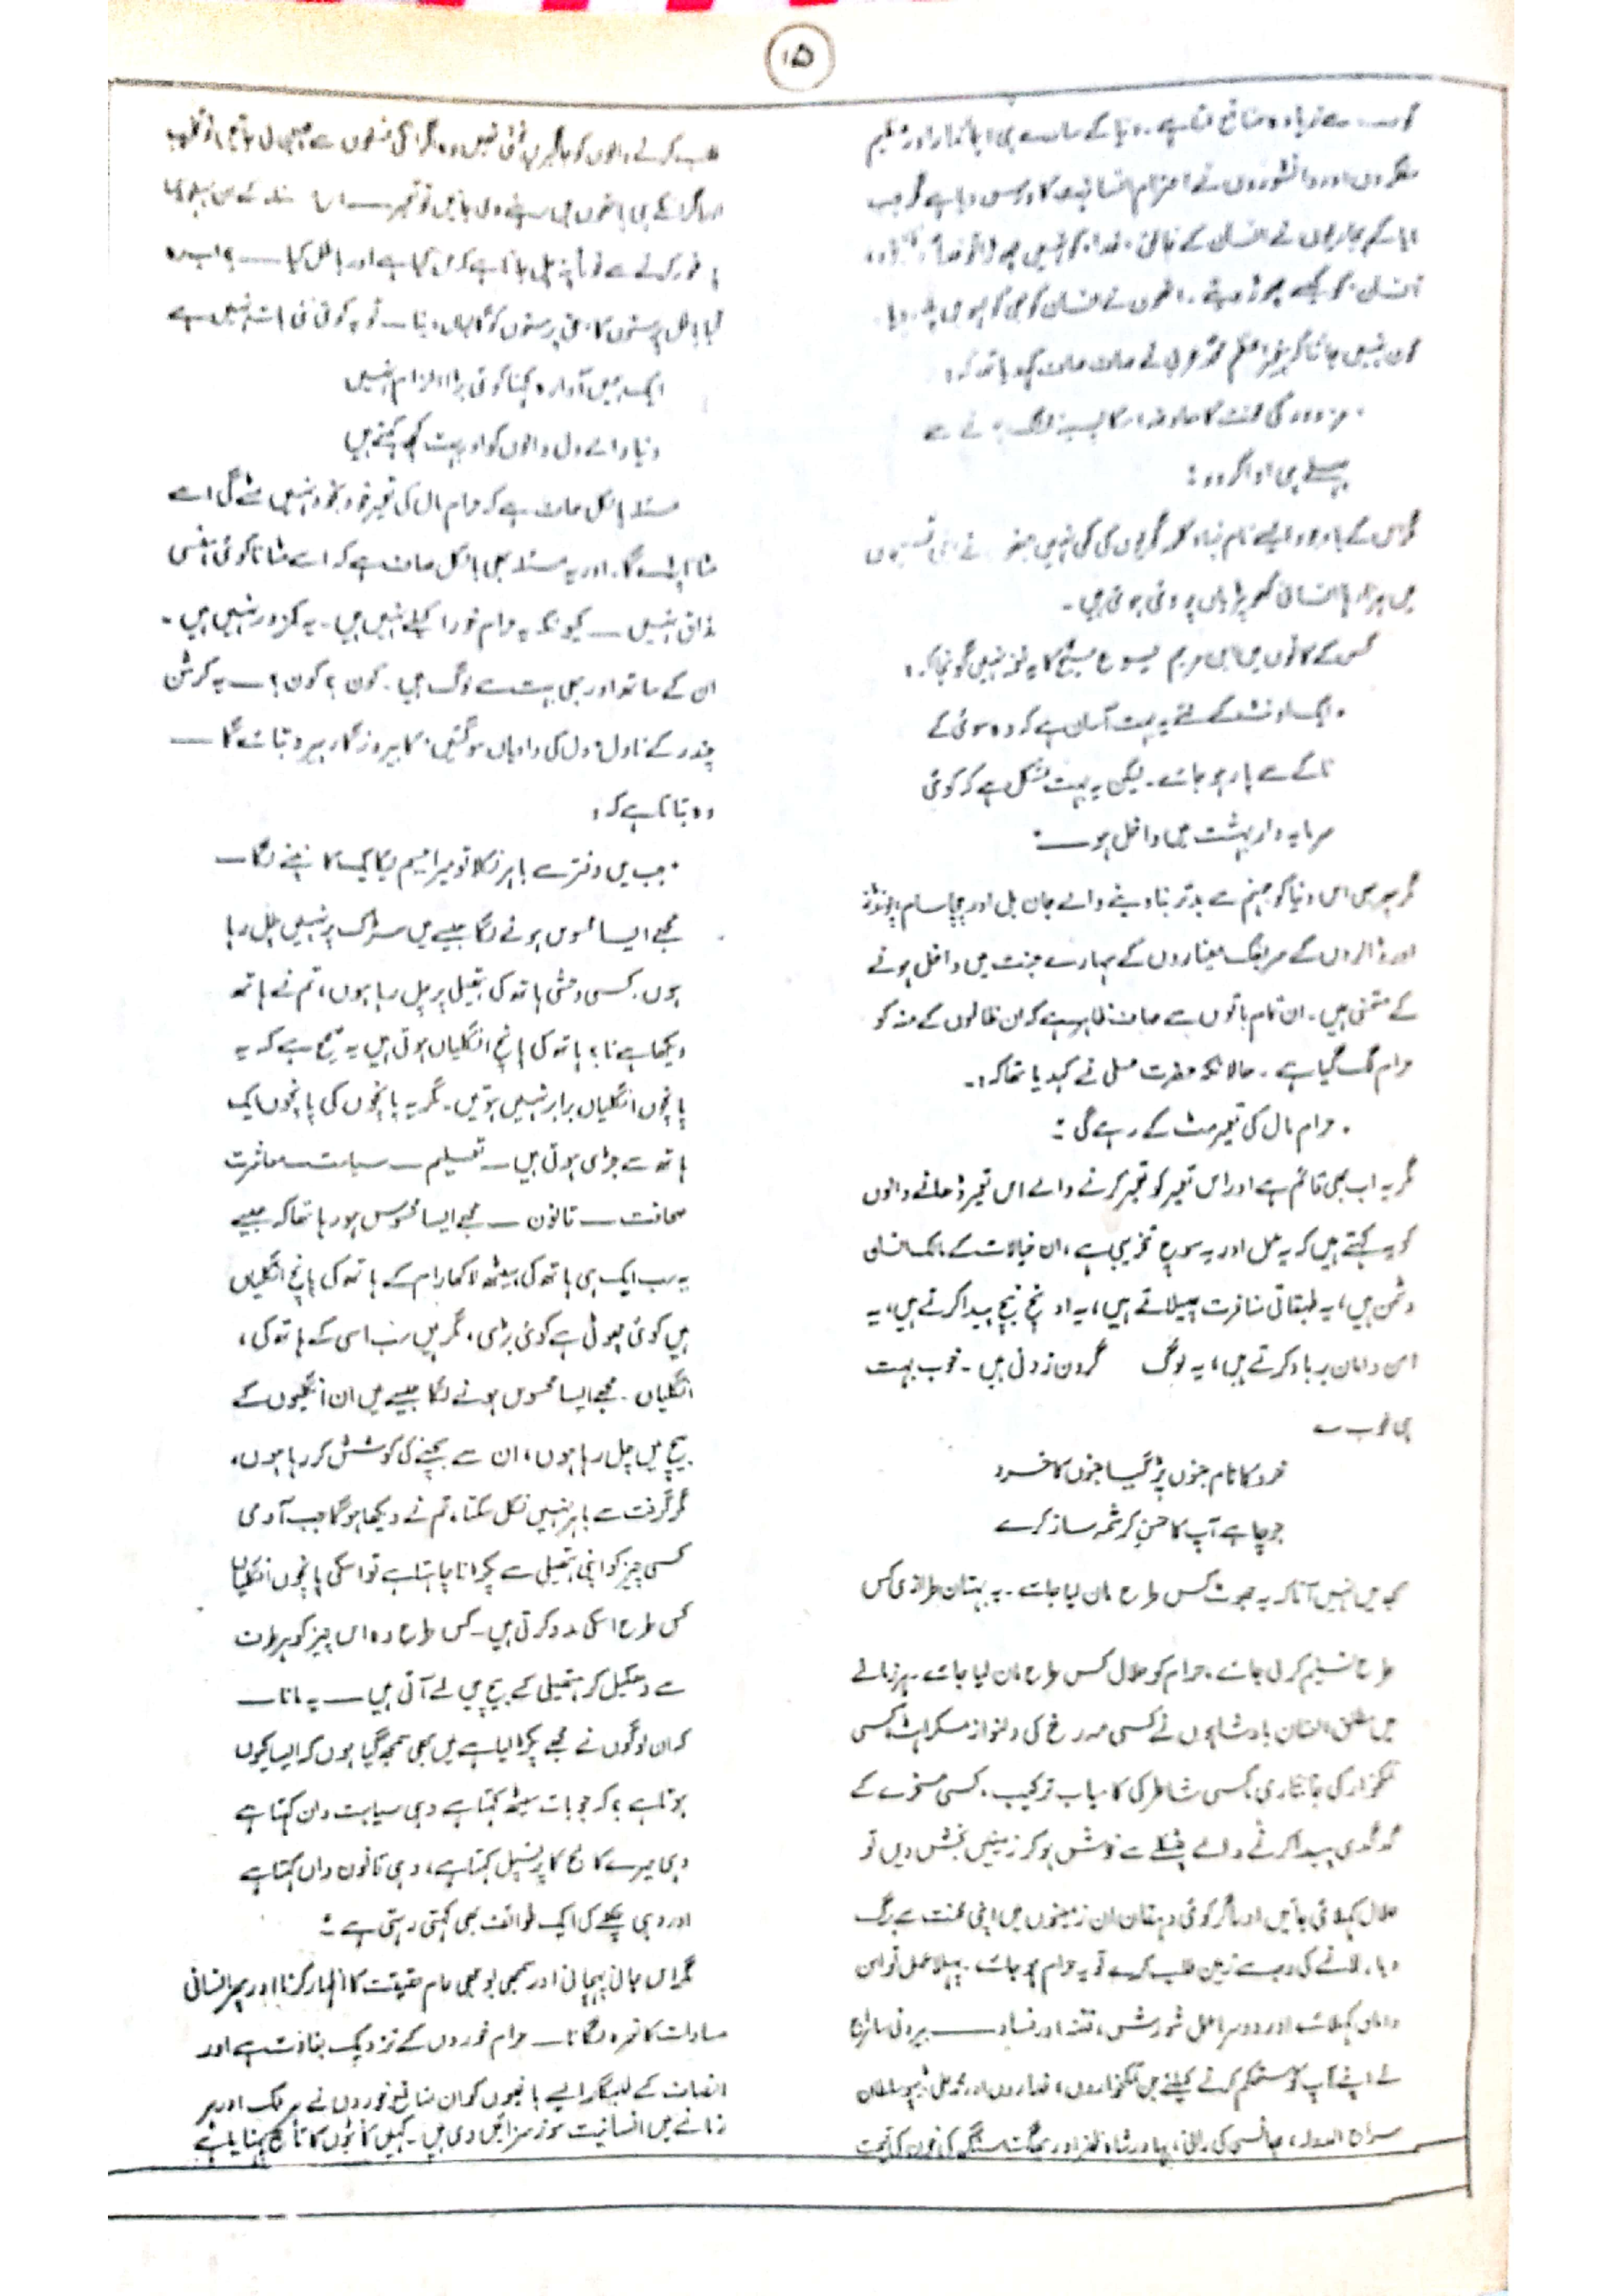 ۱۵
سے زیادہ منافع ملتا ہے۔ دنیا کے سارے ہی ایماندار اور عظیم
مفکروں اور دانشوروں نے احترامِ انسانیت کا درس دیا ہے مگر جب
کے پجاریوں نے انسان کے خالق، خدا، کو نہیں چھوڑا تو خدا
انسان، کو کیسے چھوڑ دیتے۔ انھوں نے انسان کو بھی
کون نہیں جانتا کہ پیغمبرِ اعظم محمدؐ عربی نے صاف صاف کہہ دیا تھا کہ:
"مزدور کی محنت کا معاوضہ اس کا پسینہ خشک ہونے سے
پہلے ہی ادا کر دو"
مگر اس کے باوجود ایسے نام نہاد کلمہ گویوں کی کمی نہیں جنھوں نے اپنی تسبیحوں
میں ہزارہا انسانی کھوپڑیاں پروئی ہوئی ہیں۔
کس کے کانوں میں ابن مریم یسوع مسیح کا یہ نغمہ نہیں گونجا کہ:
"ایک اونٹ کے لئے یہ بہت آسان ہے کہ وہ سوئی کے
ناکے سے پار ہو جائے۔ لیکن یہ بہت مشکل ہے کہ کوئی
سرمایہ دار بہشت میں داخل ہو۔"
مگر پھر بھی اس دنیا کو جہنم سے بدتر بنا دینے والے جان بل اور چچا سام پونڈ
اور ڈالروں کے سربفلک میناروں کے سہارے جنت میں داخل ہونے
کے متمنی ہیں۔ ان تمام باتوں سے صاف ظاہر ہے کہ ان ظالموں کے منہ کو
حرام لگ گیا ہے۔ حالانکہ حضرت علی نے کہدیا تھا کہ:
"حرام مال کی تعمیر مٹ کے رہے گی"
مگر یہ اب بھی قائم ہے اور اس تعمیر کو تعمیر کرنے والے اس تعمیر ڈھانے والوں
کو یہ کہتے ہیں کہ یہ عمل اور یہ سوچ تخریبی ہے، ان خیالات کے مالک انسان
دشمن ہیں، یہ طبقاتی منافرت پھیلاتے ہیں، یہ اونچ نیچ پیدا کرتے ہیں، یہ
امن و امان برباد کرتے ہیں، یہ لوگ گردن زدنی ہیں۔ خوب بہت
ہی خوب ؎
خرد کا نام جنوں پڑ گیا جنوں کا خرد
جو چاہے آپ کا حسنِ کرشمہ ساز کرے
سمجھ میں نہیں آتا کہ یہ جھوٹ کس طرح مان لیا جائے۔ یہ بہتان طرازی کس
طرح تسلیم کر لی جائے، حرام کو حلال کس طرح مان لیا جائے۔ ہر زمانے
میں مطلق العنان بادشاہوں نے کسی مہ رخ کی دلنواز مسکراہٹ، کسی
نمکخوار کی جانثاری، کسی شاطر کی کامیاب ترکیب، کسی مسخرے کے
گدگدی پیدا کرنے والے چٹکلے سے خوش ہو کر زمینیں بخش دیں تو
حلال کہلائی جائیں اور اگر کوئی دہقان ان زمینوں میں اپنی محنت سے برگ
و بار لانے کی وجہ سے زمین طلب کرے تو یہ حرام ہو جائے۔ پہلا عمل تو امن
و امان کہلائے اور دوسرا عمل شورش، فتنہ اور فساد ـــ بیرونی سامراج
نے اپنے آپ کو مستحکم کرنے کیلئے جن نمکخواروں، غداروں اور ٹیپو سلطان
سراج الدولہ، جھانسی کی رانی، بہادر شاہ ظفر اور بھگت سنگھ کے خون کی قیمت
طلب کرنے والوں کو جاگیریں بخشی تھیں وہ اگر انکی نسلوں سے چھین لی جائیں تو
اور اگر انکے ہی ہاتھوں میں رہنے دی جائیں تو تعمیر ـــ اس مسئلہ کے اس پہلو
غور کرنے سے فوراً پتہ چل جاتا ہے کہ حق کیا ہے اور باطل کیا ـــ؟ اب رہا
باطل پرستوں کا حق پرستوں کو گالیاں دینا ـــ تو یہ کوئی نئی بات نہیں ہے
ایک ہمیں آوارہ کہنا کوئی بڑا الزام نہیں
دنیا والے دل والوں کو اور بہت کچھ کہتے ہیں
مسئلہ بالکل صاف ہے کہ حرام مال کی تعمیر خود بخود نہیں مٹے گی اسے
مٹانا پڑے گا۔ اور یہ مسئلہ بھی بالکل صاف ہے کہ اسے مٹانا کوئی ہنسی
مذاق نہیں ـــ کیونکہ یہ حرام خور اکیلے نہیں ہیں۔ یہ کمزور نہیں ہیں۔
ان کے ساتھ اور بھی بہت سے لوگ ہیں۔ کون؟ کون؟ ـــ یہ کرشن
چندر کے ناول "دل کی وادیاں سو گئیں" کا بیروزگار ہیرو بتائے گا ـــ
وہ بتاتا ہے کہ:
"جب میں دفتر سے باہر نکلا تو میرا جسم یکایک کانپنے لگا ـــ
مجھے ایسا محسوس ہونے لگا جیسے میں سڑک پر نہیں چل رہا
ہوں۔ کسی وحشی ہاتھ کی ہتھیلی پر چل رہا ہوں، تم نے ہاتھ
دیکھا ہے نا؟ ہاتھ کی پانچ انگلیاں ہوتی ہیں یہ صحیح ہے کہ یہ
پانچوں انگلیاں برابر نہیں ہوتیں۔ مگر یہ پانچوں کی پانچوں ایک
ہاتھ سے جڑی ہوتی ہیں ـــ تعلیم ـــ سیاست ـــ معاشرت
صحافت ـــ قانون ـــ مجھے ایسا محسوس ہو رہا تھا کہ جیسے
یہ سب ایک ہی ہاتھ کی، سیٹھ لاکھا رام کے ہاتھ کی پانچ انگلیاں
ہیں کوئی چھوٹی ہے کوئی بڑی، مگر ہیں سب اسی کے ہاتھ کی،
انگلیاں۔ مجھے ایسا محسوس ہونے لگا جیسے میں ان انگلیوں کے
بیچ میں چل رہا ہوں، ان سے بچنے کی کوشش کر رہا ہوں،
مگر گرفت سے باہر نہیں نکل سکتا، تم نے دیکھا ہوگا جب آدمی
کسی چیز کو اپنی ہتھیلی سے پکڑنا چاہتا ہے تو اسکی پانچوں انگلیاں
کس طرح اسکی مدد کرتی ہیں۔ کس طرح وہ اس چیز کو ہر طرف
سے دھکیل کر ہتھیلی کے بیچ میں لے آتی ہیں ـــ یہ مانا ـــ
کہ ان لوگوں نے مجھے پکڑ لیا ہے میں بھی سمجھ گیا ہوں کہ ایسا کیوں
ہوتا ہے؟ کہ جو بات سیٹھ کہتا ہے وہی سیاست دان کہتا ہے
وہی میرے کالج کا پرنسپل کہتا ہے، وہی قانون داں کہتا ہے
اور وہی چکلے کی ایک طوائف بھی کہتی رہتی ہے"
مگر اس جانی پہچانی اور سمجھی بوجھی عام حقیقت کا اظہار کرنا اور پھر انسانی
مساوات کا نعرہ لگانا ـــ حرام خوروں کے نزدیک بغاوت ہے اور
انصاف کے طلبگار ایسے باغیوں کو ان منافع خوروں نے ہر ملک اور ہر
زمانے میں انسانیت سوز سزائیں دی ہیں۔ کہیں کانٹوں کا تاج پہنایا ہے